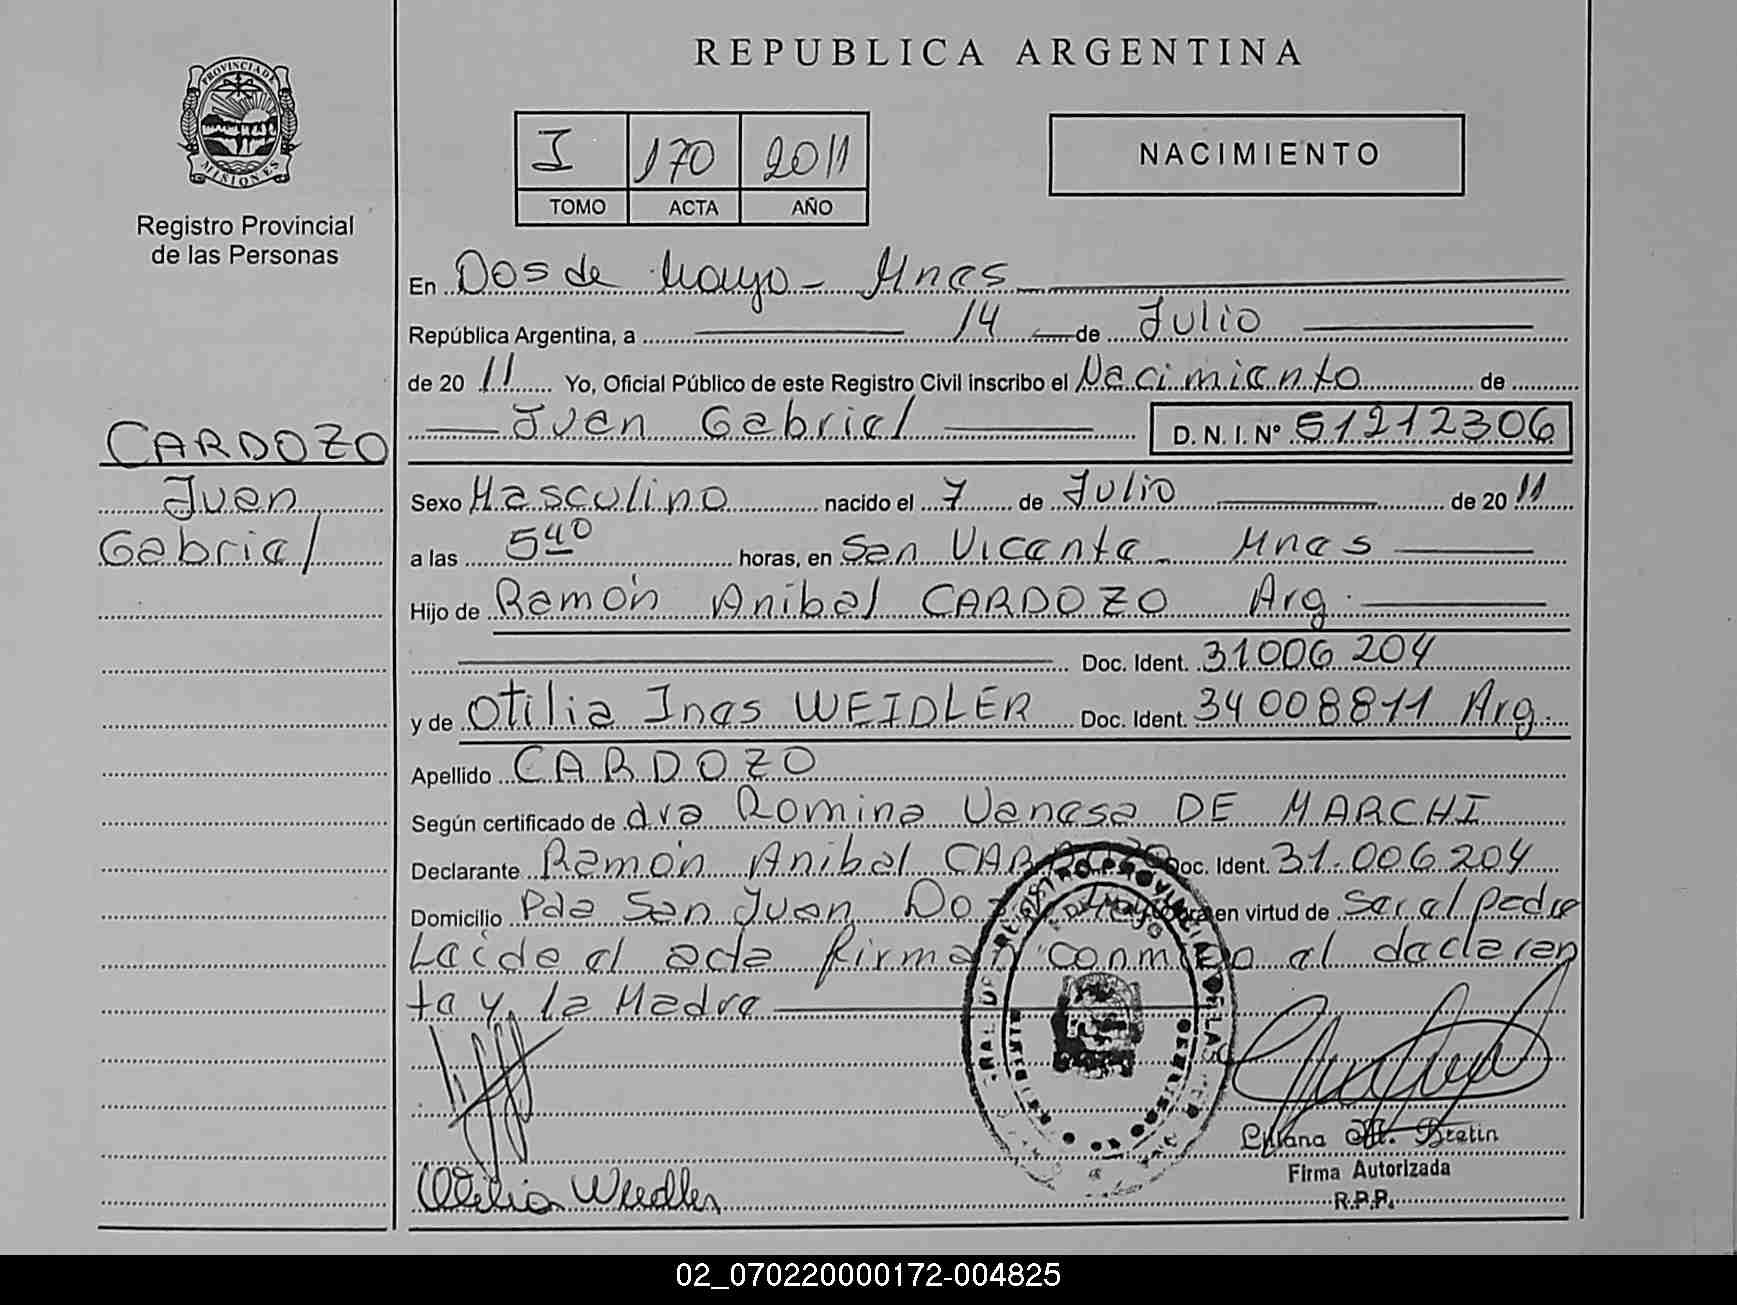 REPUBLICA ARGENTINA
PROVINCIA DE
MISIONES
Registro Provincial
de las Personas
I 170 2011
TOMO ACTA AÑO
NACIMIENTO
En Dos de Mayo - Mnes
República Argentina, a 14 de Julio
de 20 11 Yo, Oficial Público de este Registro Civil inscribo el Nacimiento de
Juan Gabriel D. N. I. Nº 51212306
CARDOZO
Juan
Gabriel
Sexo Masculino nacido el 7 de Julio de 20 11
a las 5 40 horas, en San Vicente - Mnes
Hijo de Ramón Anibal CARDOZO Arg.
Doc. Ident. 31.006.204
y de Otilia Ines WEIDLER Doc. Ident. 34 008811 Arg.
Apellido CARDOZO
Según certificado de dra Romina Vanesa DE MARCHI
Declarante Ramón Anibal CARDOZO Doc. Ident. 31.006.204
Domicilio Pde San Juan Dos de Mayo Obra en virtud de Ser el padre
Leide el acta firman conmigo el declaran
te y la Madre
Otilia Weidler
Firma Autorizada
R.P.P.
02_070220000172-004825